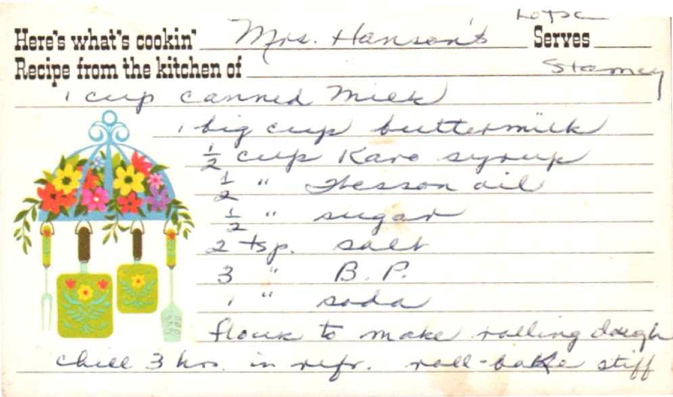 Here's what's cookin' Mrs. Hanson's Lefse Serves
Recipe from the kitchen of
1 cup canned milk
1 big cup buttermilk
1/2 cup Karo syrup
1/2 " Wesson oil
1/2 " sugar
2 tsp. salt
3 " B.P.
1 " soda
flour to make rolling dough
chill 3 hrs. in refr. roll-bake stiff